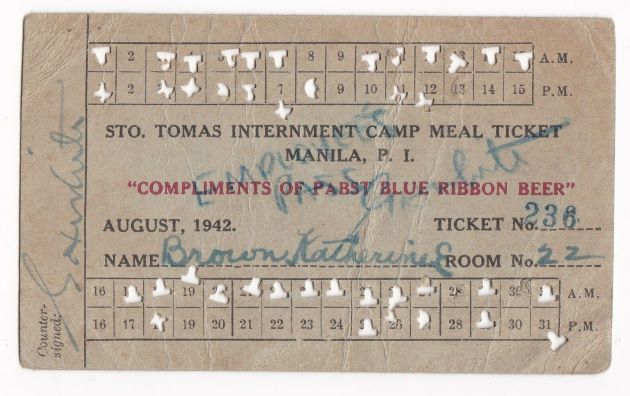 2 8 9 A.M.
2 9 10 12 13 14 15 P.M.
STO. TOMAS INTERNMENT CAMP MEAL TICKET
MANILA, P. I.
EMPLOYEES
PASS
"COMPLIMENTS OF PABST BLUE RIBBON BEER"
AUGUST, 1942. TICKET No. 236
NAME Brown, Katherine ROOM No. 22
16 A.M.
16 17 19 20 21 22 23 24 28 30 31 P.M.
Counter-
signed: